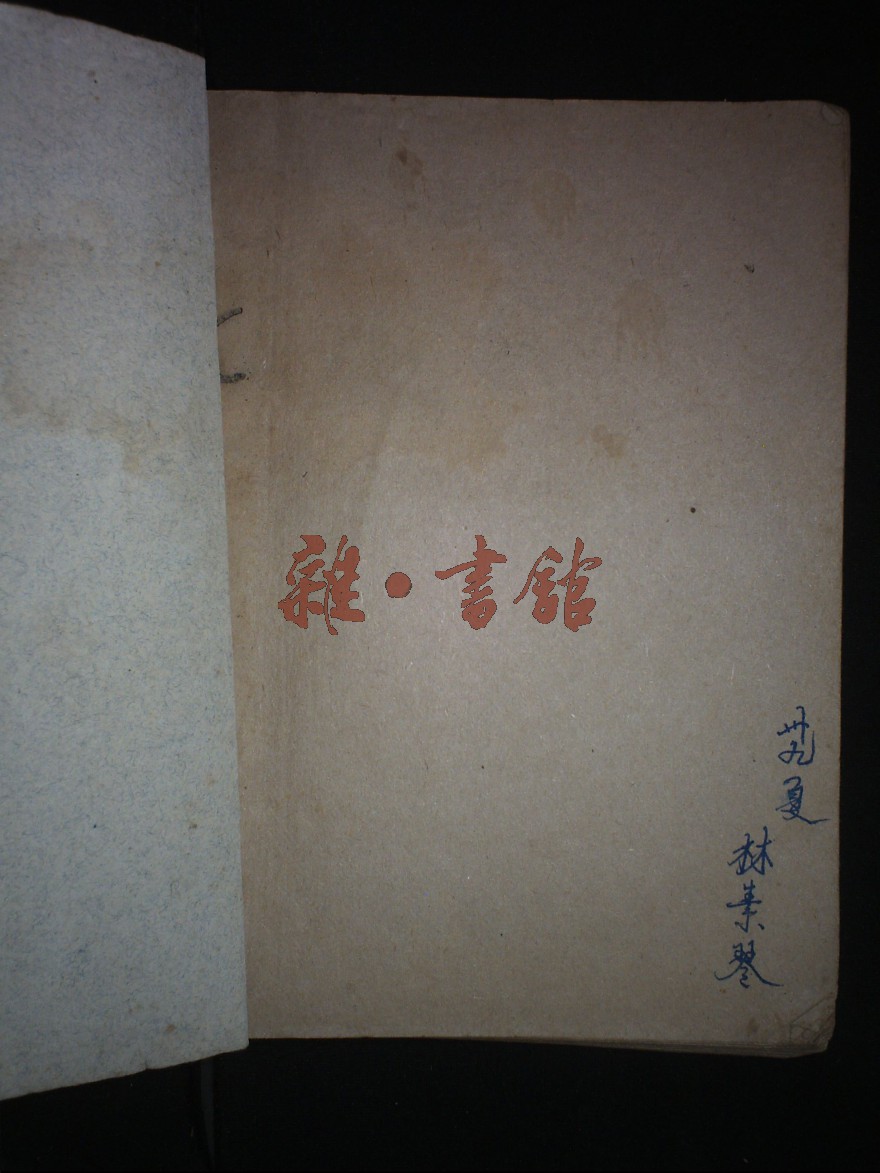 雜·書館
卅九夏
林素琴